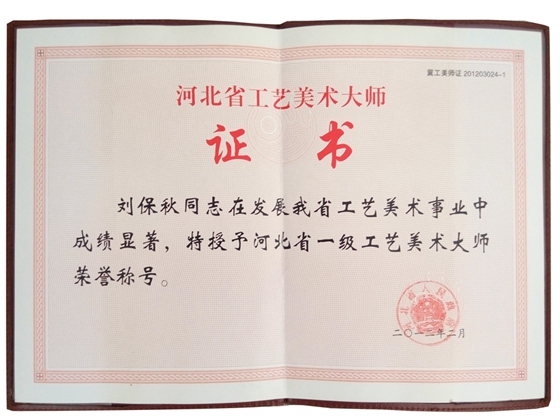 冀工美师证 201203024-1
河北省工艺美术大师
证书
刘保秋同志在发展我省工艺美术事业中
成绩显著，特授予河北省一级工艺美术大师
荣誉称号。
河北省人民政府
二〇一二年二月